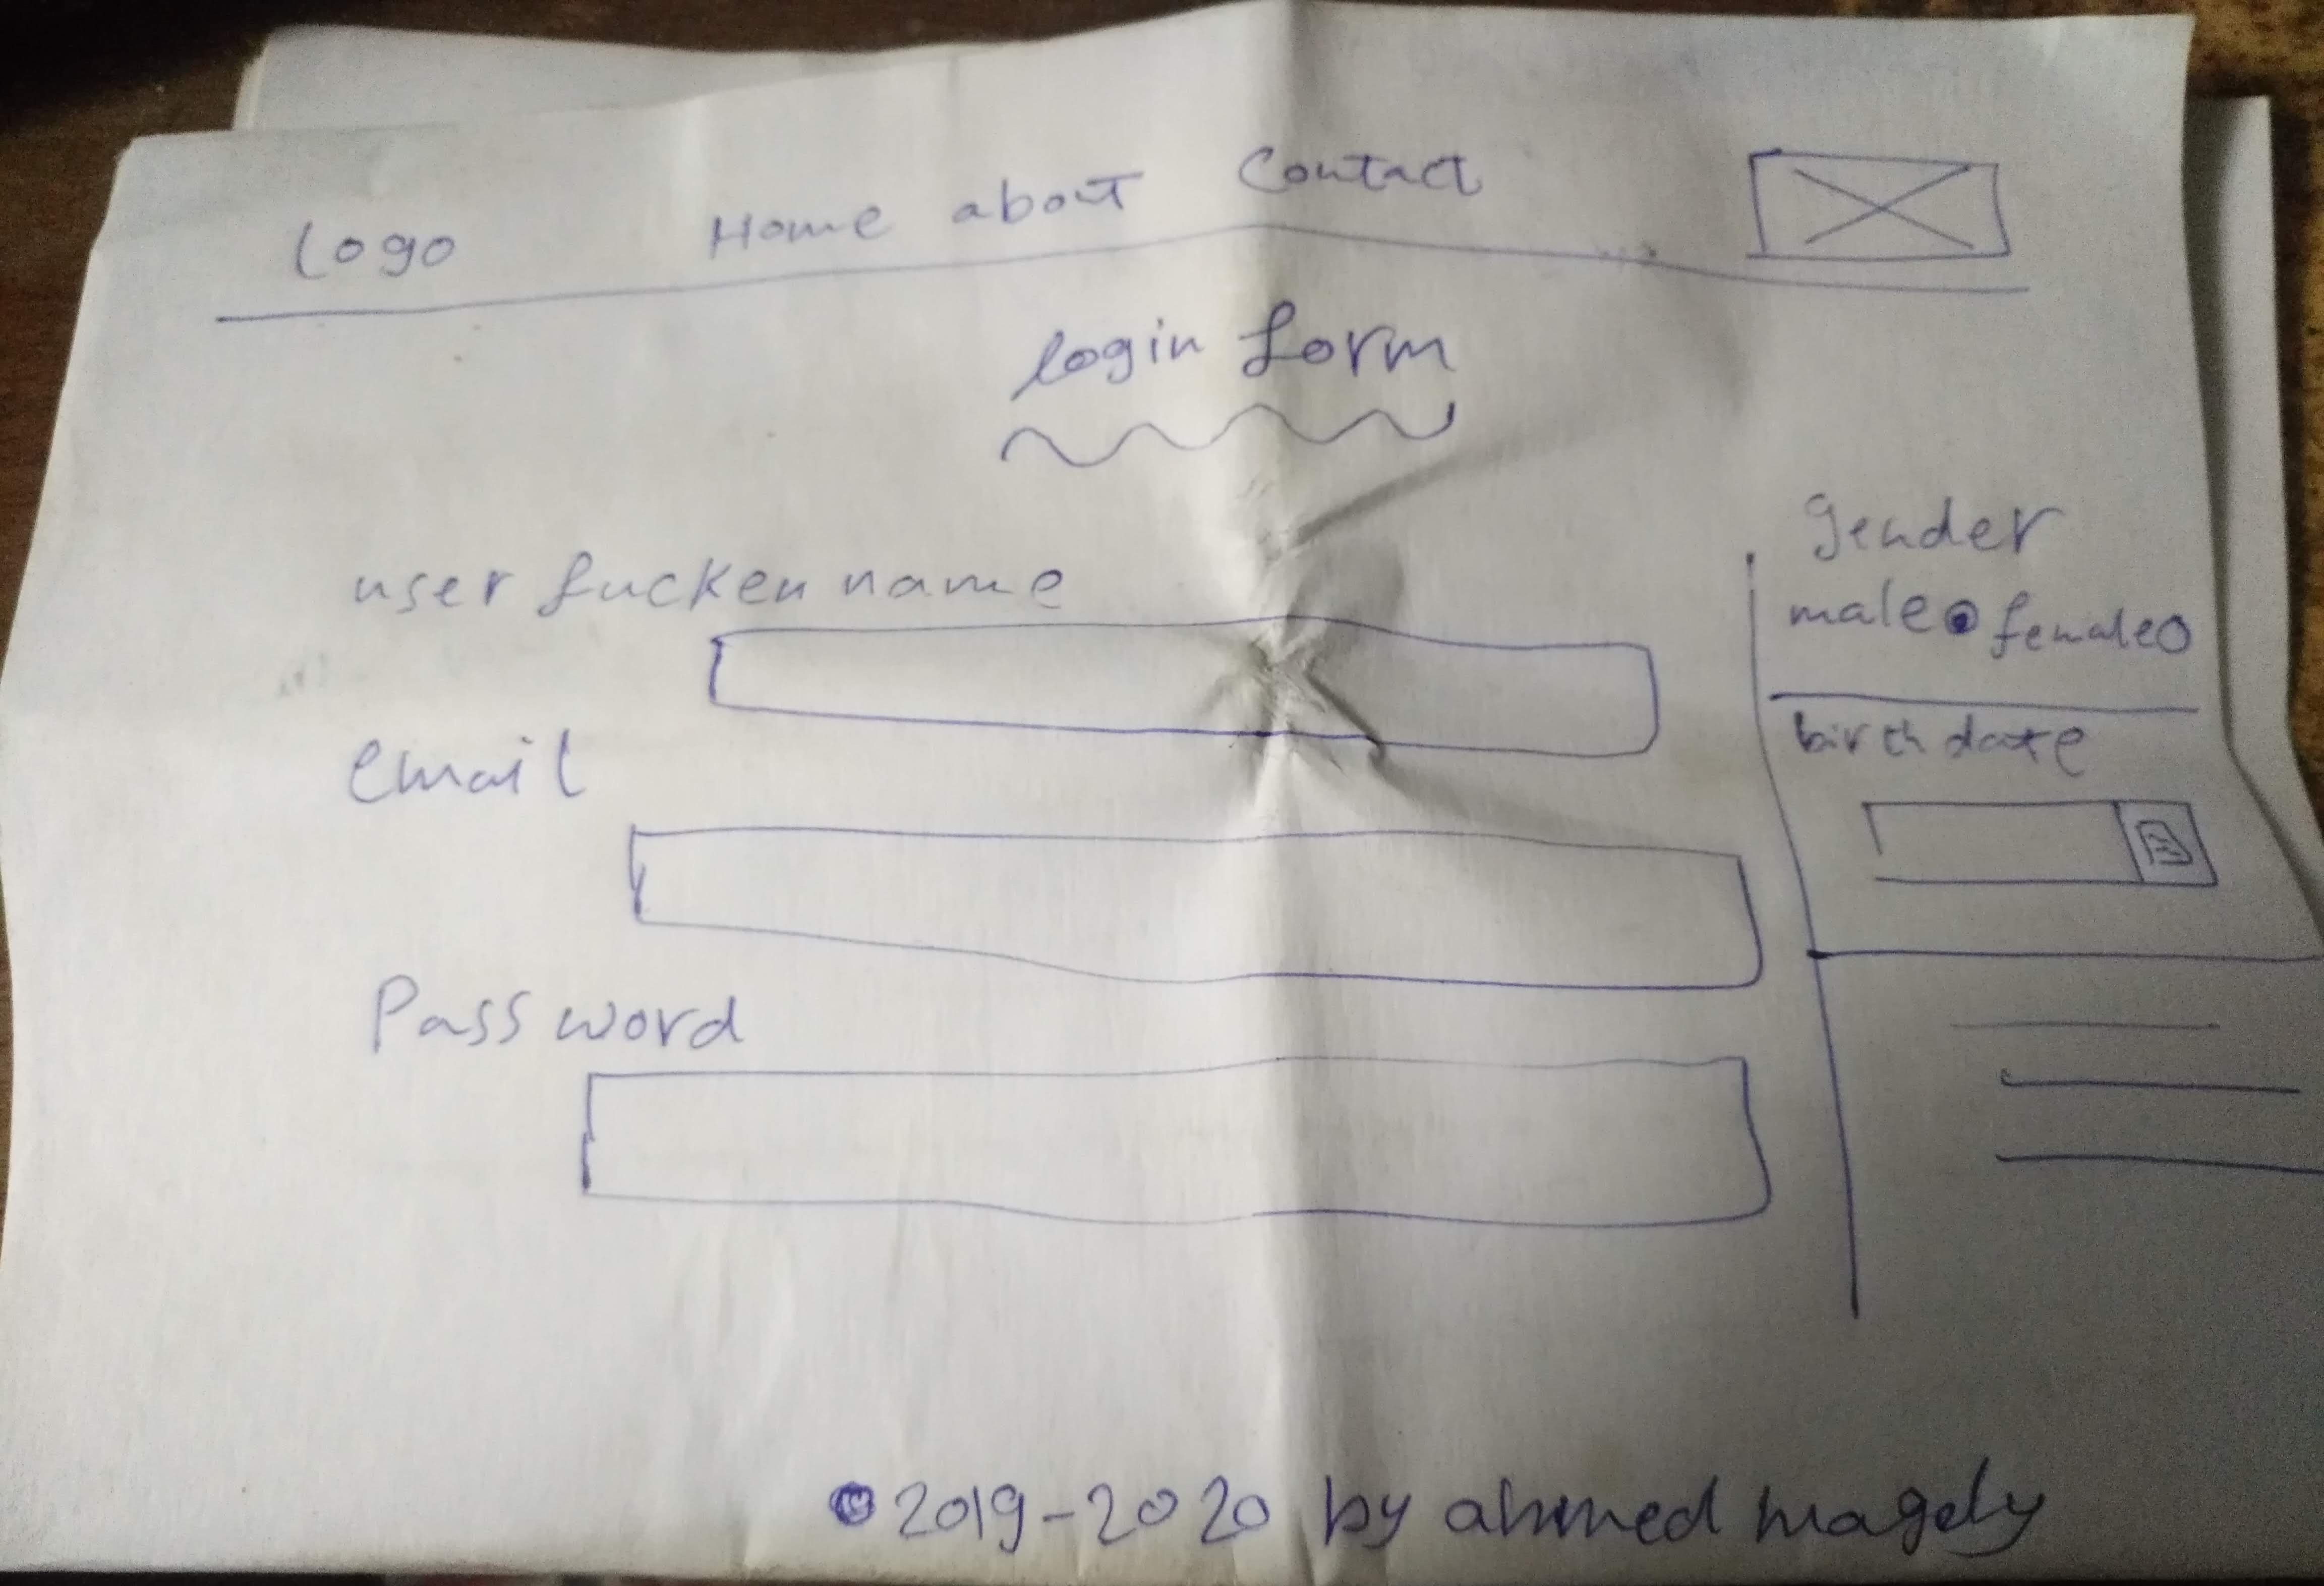 Logo Home about Contact
login form
user fucken name
email
Password
gender
male female
birth date
© 2019-2020 by ahmed magely